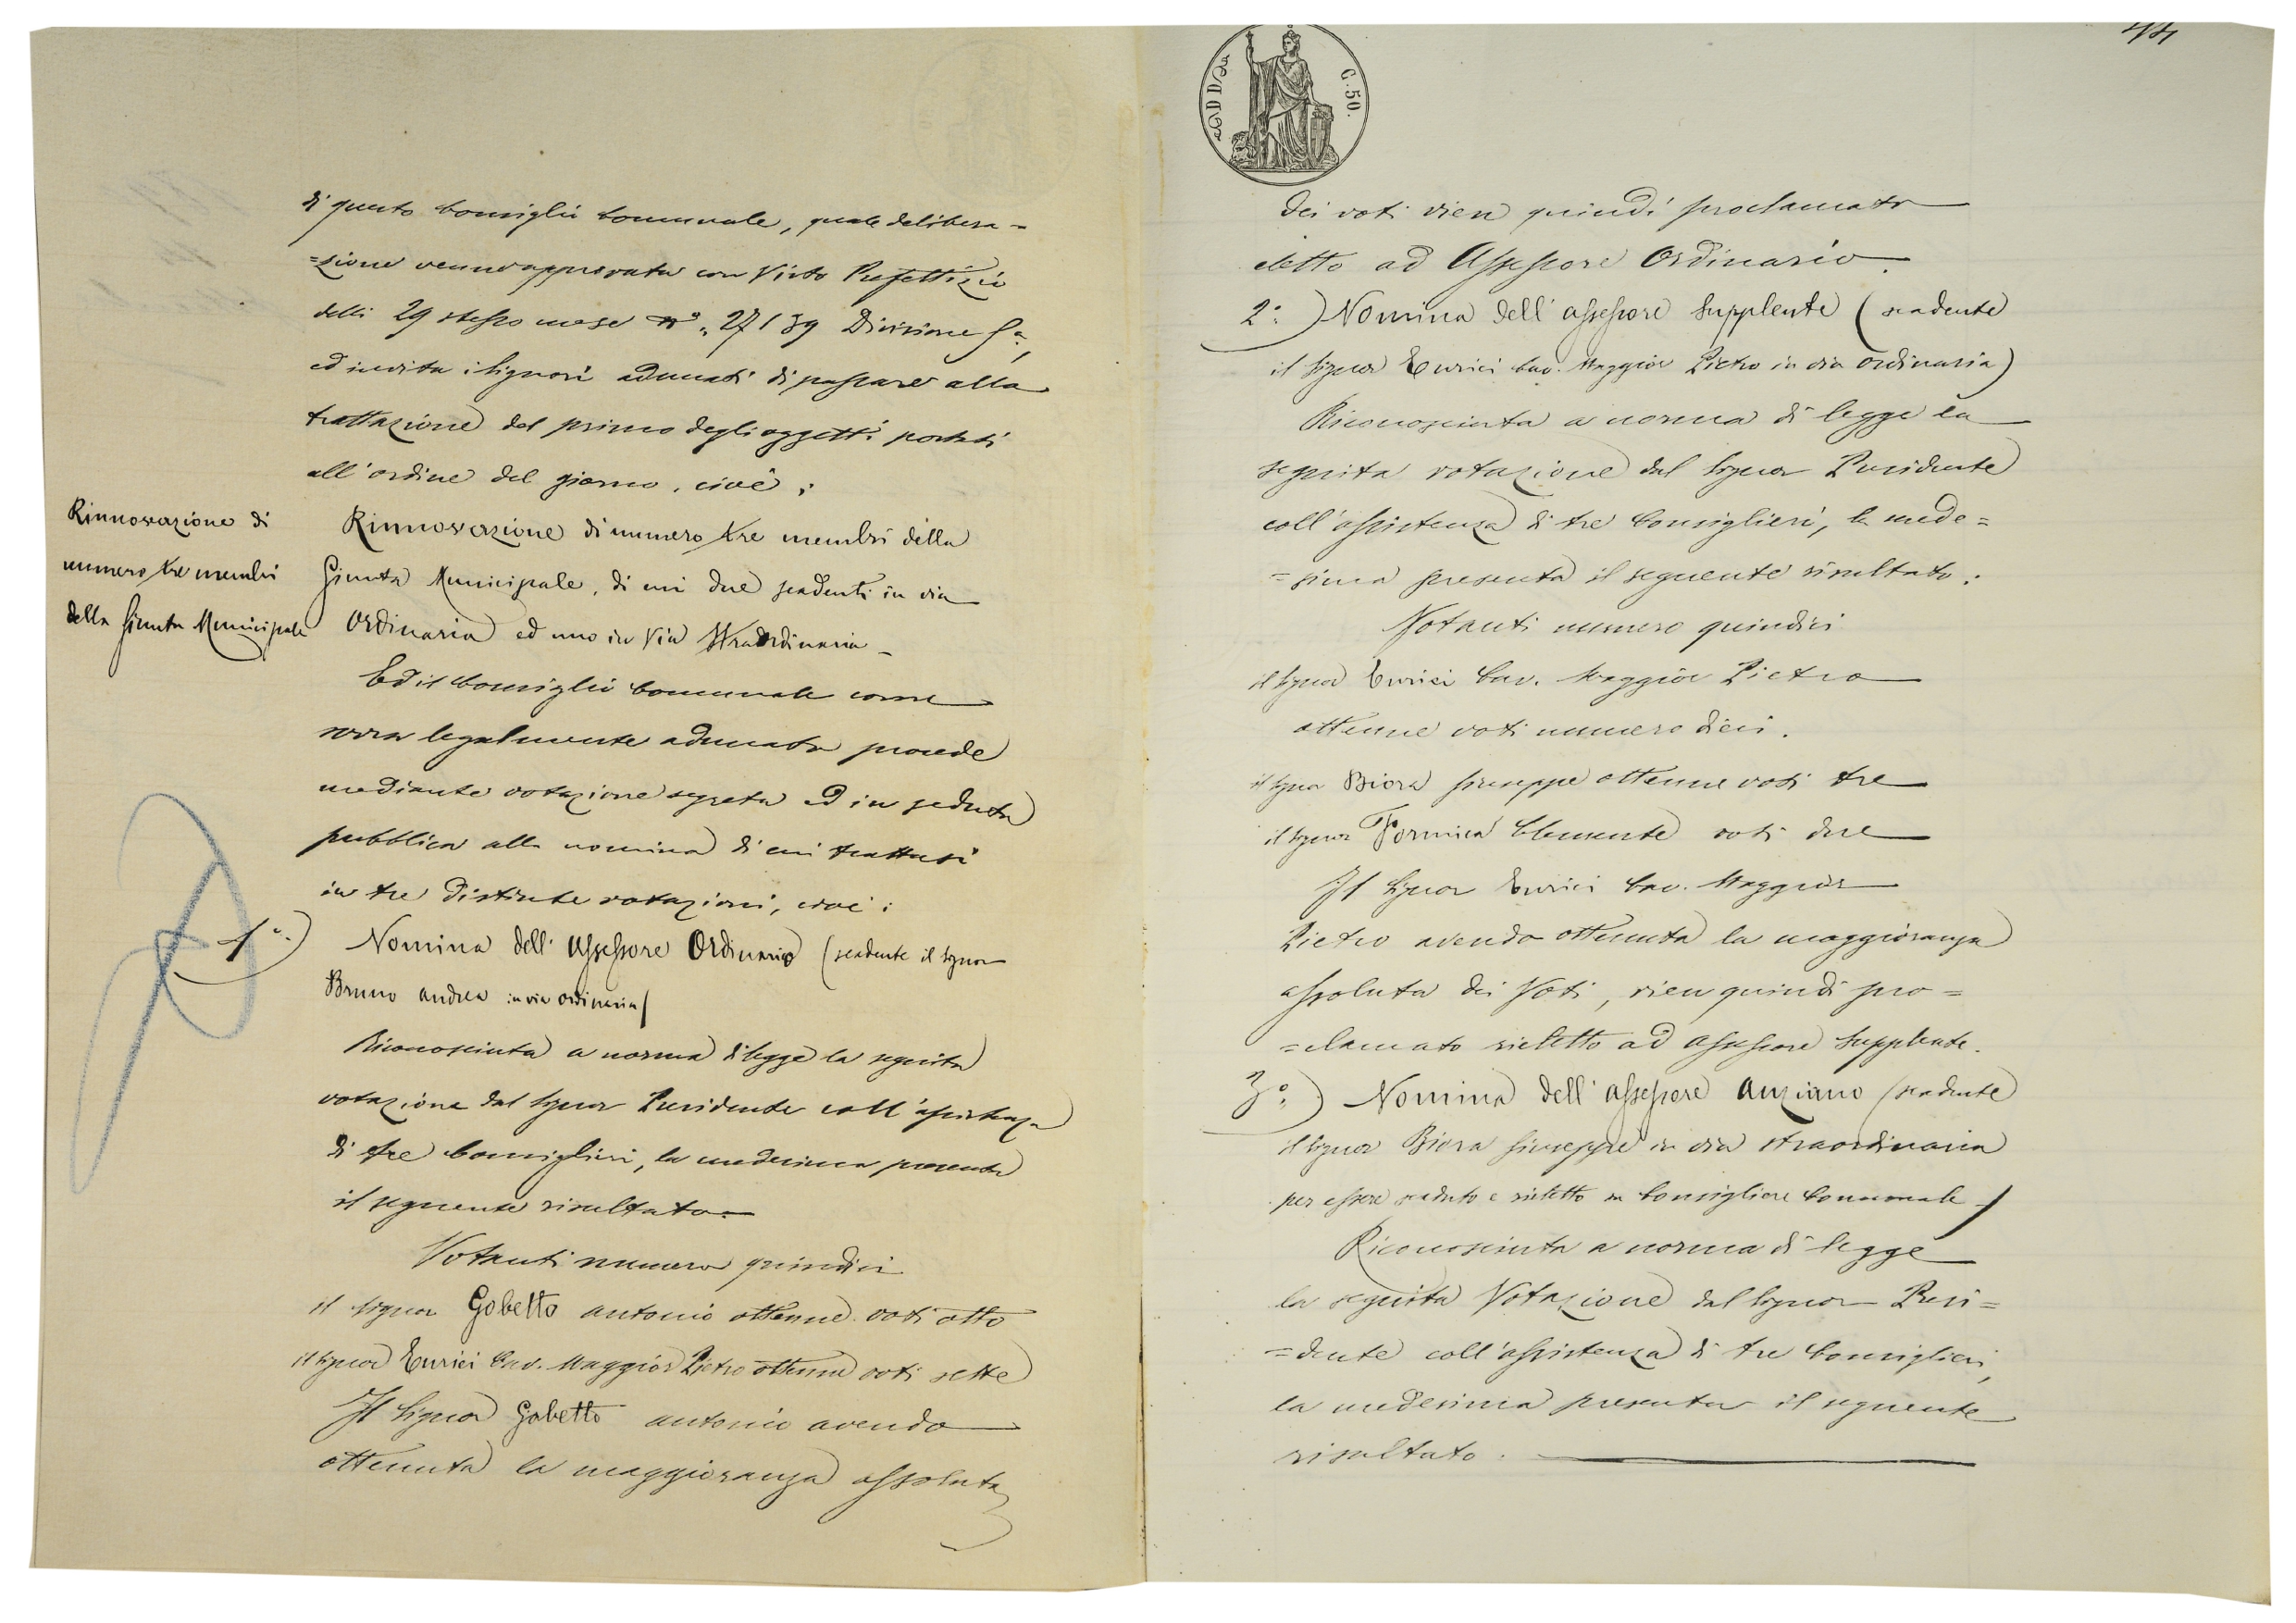 di questo Consiglio Comunale, quale delibera=
=zione venne approvata con Visto Prefettizio
delli 29 stesso mese n°. 27139 Divisione
ed invita i Signori adunati di passare alla
trattazione del primo degli oggetti portati
all'ordine del giorno, cioè:
Rinnovazione di
numero tre membri
della Giunta Municipale
Rinnovazione di numero tre membri della
Giunta Municipale, di cui due scadenti in via
Ordinaria ed uno in Via Straordinaria_
Ed il Consiglio Comunale come
sovra legalmente adunato procede
mediante votazione segreta ed in seduta
pubblica alla nomina di cui trattasi
in tre distinte votazioni, cioè:
1°.) Nomina dell'Assessore Ordinario (scadente il Signor
Bruno Andrea in via ordinaria)
Riconosciuta a norma di legge la seguita
votazione dal Signor Presidente coll'assistenza
di tre Consiglieri, la medesima presenta
il seguente risultato.
Votanti numero quindici
il Signor Gobetto Antonio ottenne voti otto
il Signor Enrici Cav. Maggior Pietro ottenne voti sette
Il Signor Gobetto Antonio avendo
ottenuta la maggioranza assoluta
C. 50.
dei voti vien quindi proclamato
eletto ad Assessore Ordinario.
2°.) Nomina dell'assessore Supplente (scadente
il Signor Enrici Cav. Maggior Pietro in via ordinaria)
Riconosciuta a norma di legge la
seguita votazione dal Signor Presidente
coll'assistenza di tre Consiglieri, la mede=
=sima presenta il seguente risultato:
Votanti numero quindici
il Signor Enrici Cav. Maggior Pietro
ottenne voti numero dieci.
il Signor Biora Giuseppe ottenne voti tre
il Signor Formica Clemente voti due
Il Signor Enrici Cav. Maggior
Pietro avendo ottenuta la maggioranza
assoluta dei Voti, vien quindi pro=
=clamato rieletto ad assessore Supplente.
3°.) Nomina dell'assessore Anziano (scadente
il Signor Biora Giuseppe in via straordinaria
per essere scaduto e rieletto a Consigliere Comunale)
Riconosciuta a norma di legge
la seguita Votazione dal Signor Presi=
=dente coll'assistenza di tre Consiglieri,
la medesima presenta il seguente
risultato.